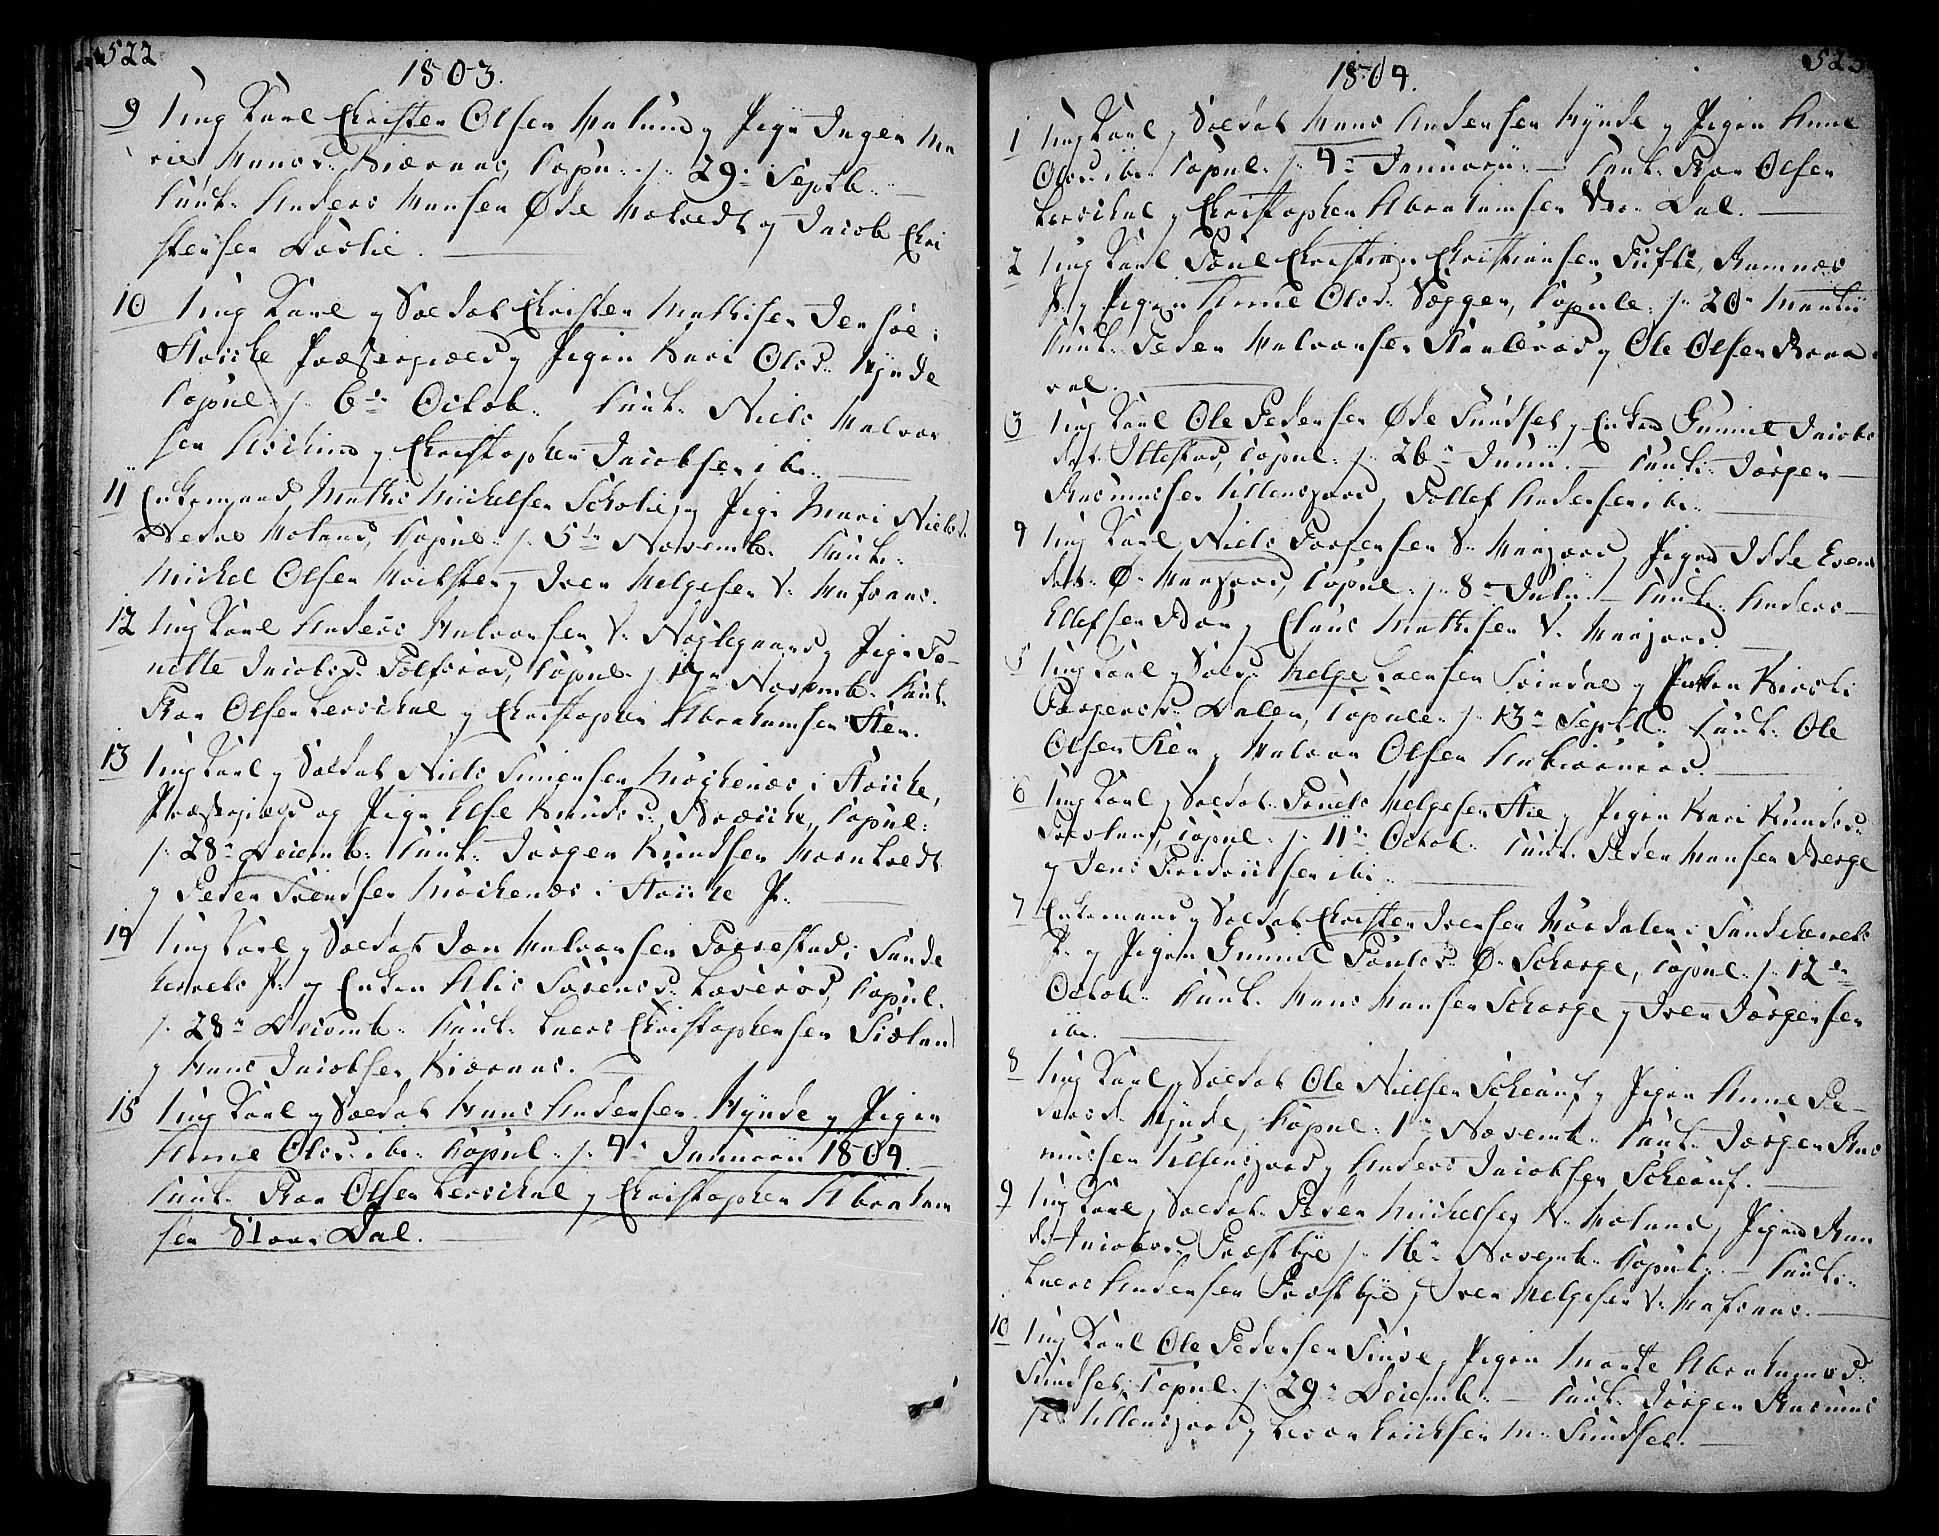 522
1803.
9 Ung Karl Christen Olsen Halum og Pige Inger Ma
rie Hansd. Kiærnæs, Copu. p. 29. Septb.
Caut. Anders Hansen Øde Holtedt og Jacob Chri
stensen Laslie.
10 Ung Karl og Soldat Christen Mathisen Jersøe i
Stocke Præstegield og Pigen Kari Olsd. Hynde
Copul. p. 6te Octob. Caut. Niels Halvor
sen Askind og Christopher Jacobsen ibi.
11 Enkemand Mathis Michelsen Scholie og Pige Mari Nielsd.
Nedre Holand, Copul. p. 5te Novemb. Caut.
Michel Olsen Hvilsten og Iver Helgesen V. Hafsnæs.
12 Ung Karl Anders Halvorsen V. Nøglegaard og Pige To-
nette Jacobsd. Tolfsrød, Copul. p. 17n Novemb. Caut.
Thor Olsen Lerschal og Christopher Abrahamsen Sten.
13 Ung Karl og Soldat Niels Simensen Mochenæs i Stocke,
Præstegield og Pige Else Knudsd. Bræche, Copul.
p. 28n Decemb. Caut. Jørgen Knudsen Hornholdt
og Peder Svendsen Mochenæs i Stocke P.
14 Ung Karl og Soldat Jon Halvorsen Torrestad i Sande
herreds P. og Enken Alis Sørensd. Løverød, Copul.
p. 28n Decemb. Caut. Laers Christophersen Siøland
og Hans Jacobsen Kiærnæs.
15 Ung Karl og Soldat Hans Andersen Hynde og Pigen
Anne Olsd. ibi. Copul. p. 4. Januarii 1804.
Caut. Thor Olsen Lerschal og Christopher Abraham
sen Stoer Dal.
523
1804.
1 Ung Karl og Soldat Hans Andersen Hynde og Pigen Anne
Olsd. ibi. Copul. p. 4n Januarii. Caut. Thor Olsen
Lerschal og Christopher Abrahamsen Sto. Dal.
2 Ung Karl Poul Christian Christiansen Tufte, Ramnæs
P. og Pigen Anne Olsd. Vegger, Copule. p. 20n Martii
Caut. Peder Halvorsen Kaalerød og Ole Olsen Rona
val.
3 Ung Karl Ole Pedersen Øde Sundset og Enken Gunnil Jacobs
dat. Ittestad, Copul. p. 26n Junii. Caut. Jørgen
Rasmusen Ullensgaard og Tollef Andersen ibi.
4 Ung Karl Niels Torgersen V. Hangaard og Pigen Idde Evens
dat. Ø. Hangaard, Copul. p. 8n Julii. Caut. Anders
Ellefsen Bøe og Claus Mathisen V. Hangaard.
5 Ung Karl og Sold. Helge Laersen Svindal og Enken Kirsti
Torgersd. Dalen, Copule. p. 13n Septb. Caut. Ole
Olsen Sten og Halvor Olsen Anbiørnrød.
6 Ung Karl og Soldat Povels Helgesen Stie og Pigen Kari Knudsd.
Forstauf, Copul. p. 11n Octob. Caut. Peder Hansen Berge
og Jens Fridricksen ibi.
7 Enkemand og Soldat Christen Iversen Moedalen i Sandeherreds
P. og Pigen Gunnil Poulsd. Ø. Schorge, Copul. p. 12en
Octob. Caut. Hans Hansen Schorge og Iver Jørgensen
ibi.
8 Ung Karl og Soldat Ole Nielsen Schiauf og Pigen Anne Pe-
dersd. Hynde, Copul. 1n Novemb. Caut. Jørgen Ras
musen Ullensgaard og Anders Jacobsen Schiauf.
9 Ung Karl og Soldat Peder Michelsen N. Holand og Pigen Ran
di Jacobsd. Præstbye p. 16n Novemb. Copul. Caut.
Laers Andersen Præstbye og Iver Helgesen V. Hafsnæs.
10 Ung Karl Ole Pedersen Linde og Pigen Marte Abrahamsd.
Sundset, Copul. p. 29n Decemb. Caut. Jørgen Rasmus
sen Ullensgaard og Lars Ericksen M. Sundset.